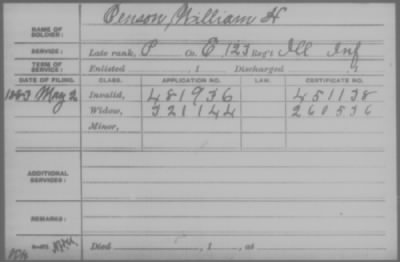 NAME OF SOLDIER: Penson, William H
SERVICE: Late rank, P Co. E, 123 Reg't Ill Inf
TERM OF SERVICE: Enlisted , 1 Discharged , 1
DATE OF FILING. CLASS. APPLICATION NO. LAW. CERTIFICATE NO.
1883 May 2 Invalid, 481936 451138
Widow, 321144 260536
Minor,
ADDITIONAL SERVICES:
REMARKS:
Died , 1 , at